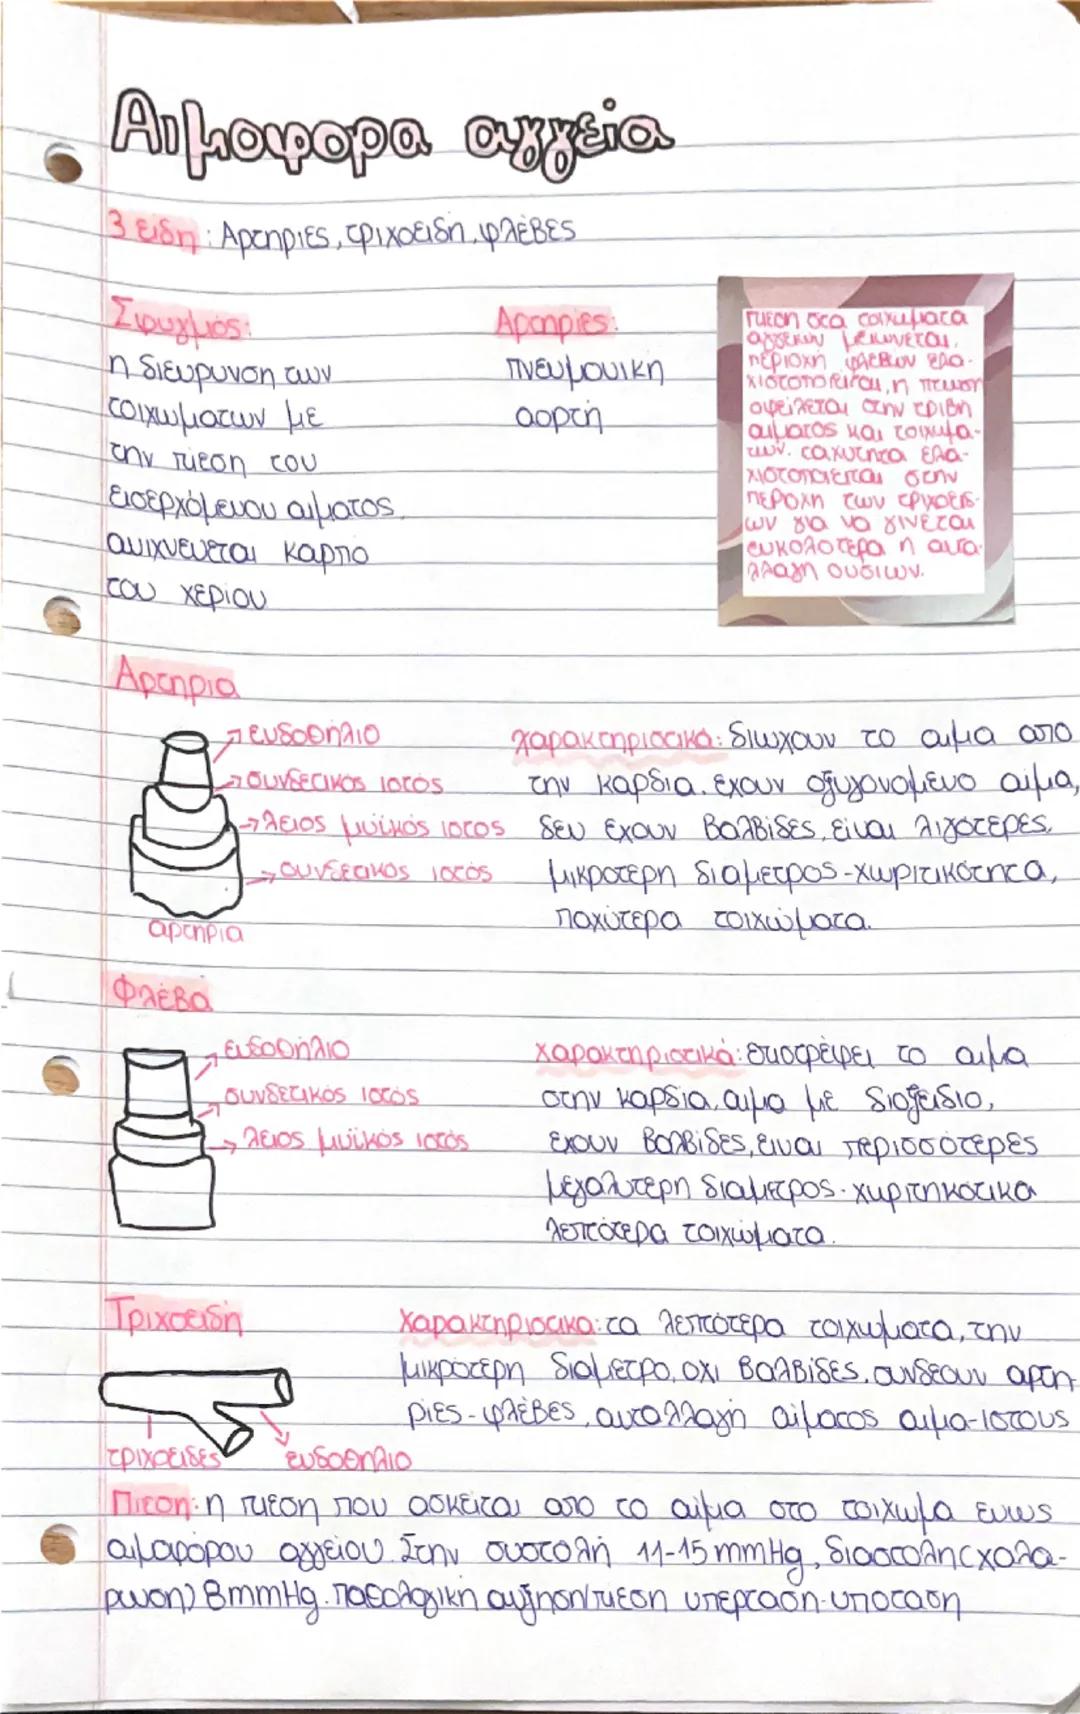 Αιμοφορα αγγεία
3 είδη: Αρτηριες, τριχοειδη, φλέβες
Σφυγμός:
η διευρυνση των
τοιχωματων με
την πιεση του
εισερχόμενου αιματος
ανιχνευεται καρπο
του χεριου
Αρτηριες:
πνευμονικη
αορτή
πιεση στα τοιχωματα
αγγειων μειωνεται,
περιοχη φλεβων ελα-
χιστοποιειται, η πτωση
οφείλεται στην τριβη
αιματος και τοιχωμα-
των. ταχυτητα ελα-
χιστοποιειται στην
περιοχη των τριχοειδ-
ων για να γινεται
ευκολοτερα η αντα-
λλαγη ουσιων.
Αρτηρια
ενδοθήλιο
συνδετικός ιστός
λειος μυϊκός ιστος
συνδετικος ιστός
αρτηρια
χαρακτηριστικα: διωχουν το αιμα απο
την καρδια. εχουν οξυγονομενο αιμα,
δεν εχουν βαλβιδες, ειναι λιγότερες,
μικροτερη διαμετρος-χωριτικότητα,
παχύτερα τοιχώματα.
Φλέβα
ενδοθήλιο
συνδετικός ιστός
λειος μυϊκός ιστός
χαρακτηριστικά: επιστρέφει το αιμα
στην καρδια, αιμα με διοξειδιο,
εχουν βαλβιδες, ειναι περισσότερες
μεγαλυτερη διαμετρος-χωριτηκοτικα
λεπτότερα τοιχώματα.
Τριχοειδη
τριχοειδες
ενδοθηλιο
χαρακτηριστικα: τα λεπτότερα τοιχωματα, την
μικρότερη διαμετρο, οχι βαλβιδες, συνδεουν αρτη-
ριες-φλέβες, ανταλλαγη αιματος αιμα-ιστους
Πιεση: η πιεση που ασκείται απο το αιμα στο τοιχωμα ενως
αιμαφόρου αγγείου. Στην συστολή 11-15 mmHg, διαστολη(χαλα-
ρωση) 8mmHg. παθολογικη αυξηση/πιεση υπερταση-υποταση